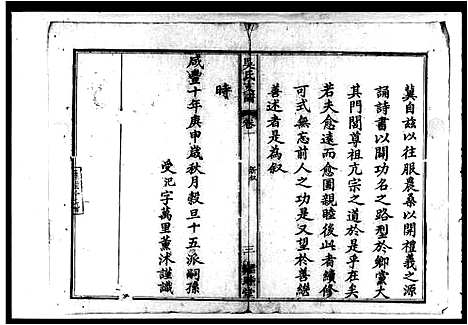 冀自兹以往服農桑以開禮義之源
誦詩書以開功名之路型於鄉黨大
其門閭尊祖亢宗之道於是乎在矣
若夫愈遠而愈圖親睦後此者續修
可式無忘前人之功是又望於善繼
善述者是為叙
吳氏支譜
卷
叙
三
時
咸豐十年庚申歲秋月穀旦十五派嗣孫
受祀字萬里薰沐謹識